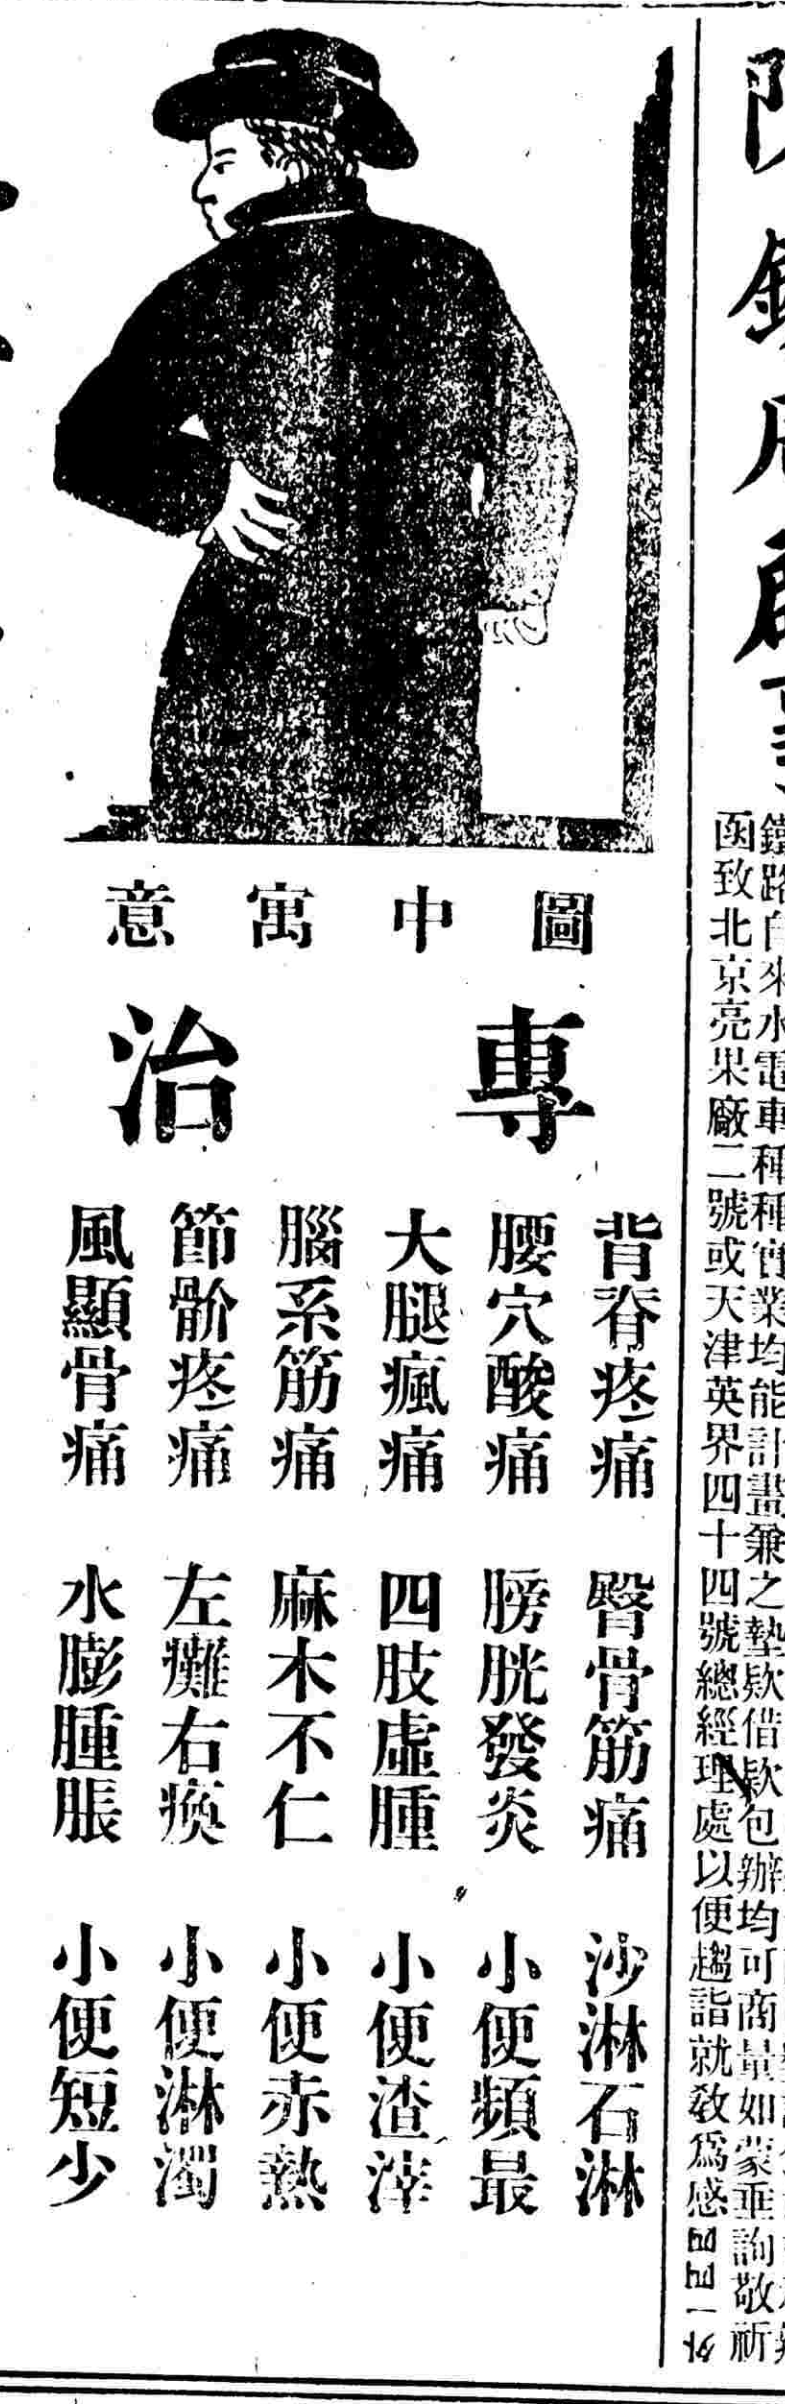 鐵路自來水電車種種實業均能計畫兼之墊欵借欵包辦均可商量如蒙垂詢敬祈
函致北京亮果廠二號或天津英界四十四號總經理處以便趨詣就敎爲感
圖中寓意
專治
背脊疼痛 臀骨筋痛 沙淋石淋
腰穴酸痛 膀胱發炎 小便頻最
大腿瘋痛 四肢虛腫 小便渣滓
腦系筋痛 麻木不仁 小便赤熱
節骱疼痛 左癱右瘓 小便淋濁
風顯骨痛 水膨腫脹 小便短少